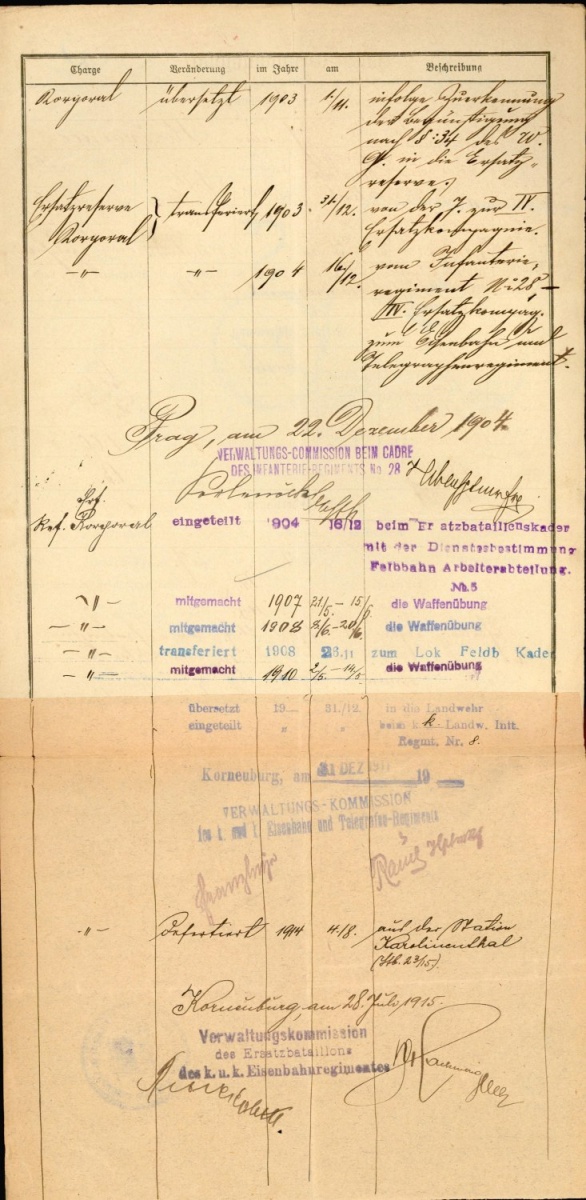 Charge Veränderung im Jahre am Beschreibung
Korporal übersetzt 1903 1./11. infolge Zuerkennung
der Begünstigung
nach § 34 des W.
G. in die Ersatz-
reserve.
Ersatzreserve transferiert 1903 31./12. von der 7. zur IV.
Korporal Ersatzkompagnie.
-"- -"- 1904 16./12. vom Infanterie-
regiment No 28 -
IV. Ersatzkompag.
zum Eisenbahn und
Telegraphenregiment.
Prag, am 22. Dezember 1904.
VERWALTUNGS-COMMISSION BEIM CADRE
DES INFANTERIE-REGIMENTS No 28
Korporal eingeteilt 1904 16/12 beim Ersatzbataillonskader
mit der Dienstesbestimmung
Felbbahn Arbeiterabteilung.
No. 5
-"- mitgemacht 1907 21/5. - 15/6 die Waffenübung
-"- mitgemacht 1908 /6. - 20/6. die Waffenübung
-"- transferiert 1908 28.11 zum Lok Feldb Kader
-"- mitgemacht 1910 2/5. - 14/5 die Waffenübung
übersetzt 19— 31./12. in die Landwehr
eingeteilt " " beim k. k. Landw. Inft.
Regmt. Nr. 8.
Korneuburg, am 31 DEZ 191 19
VERWALTUNGS-KOMMISSION
des k. und k. Eisenbahn und Telegrafen-Regiments
-"- desertiert 1914 4/8. aus der Station
Karolinenthal
(Stb. 23/15).
Korneuburg, am 28. Juli 1915.
Verwaltungskommission
des Ersatzbataillons
des k. u. k. Eisenbahnregimentes